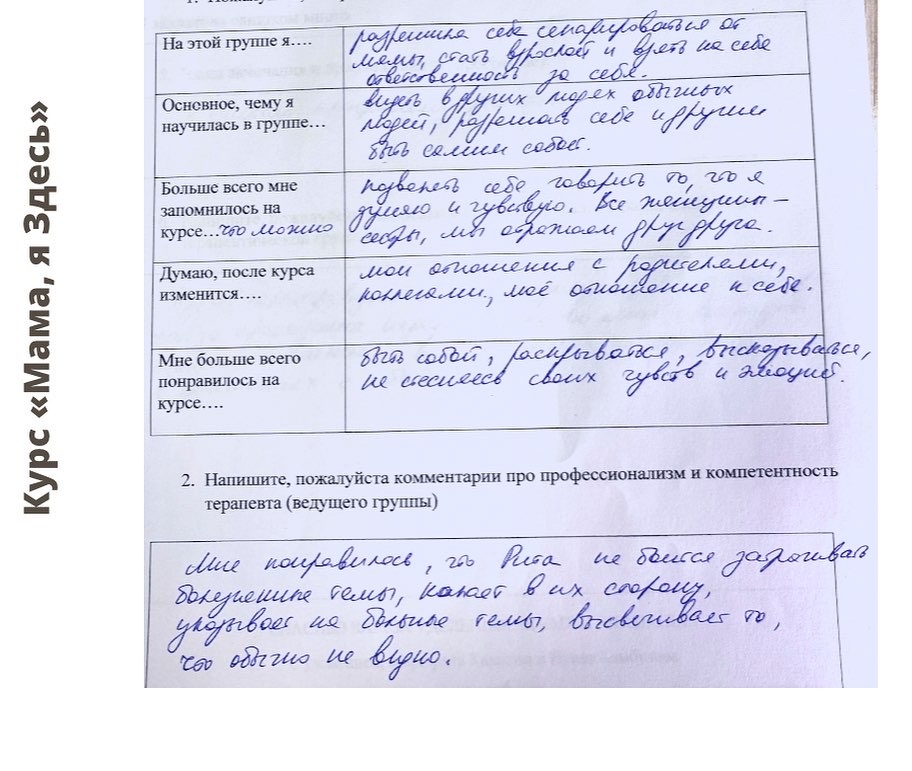 Курс «Мама, я Здесь»
На этой группе я….
разрешила себе сепарироваться от
мамы, стать взрослой и взять на себя
ответственность за себя.
Основное, чему я
научилась в группе…
видеть в других людях обычных
людей, разрешать себе и другим
быть самим собой.
Больше всего мне
запомнилось на
курсе…что можно
позволять себе говорить то, что я
думаю и чувствую. Все женщины –
сестры, мы отражаем друг друга.
Думаю, после курса
изменится….
мои отношения с родителями,
коллегами, моё отношение к себе.
Мне больше всего
понравилось на
курсе….
быть собой, раскрываться, высказываться,
не стесняясь своих чувств и эмоций.
2. Напишите, пожалуйста комментарии про профессионализм и компетентность
терапевта (ведущего группы)
Мне понравилось, что Рита не боится затрагивать
болезненные темы, копает в их сторону,
указывает на больные темы, высвечивает то,
что обычно не видно.